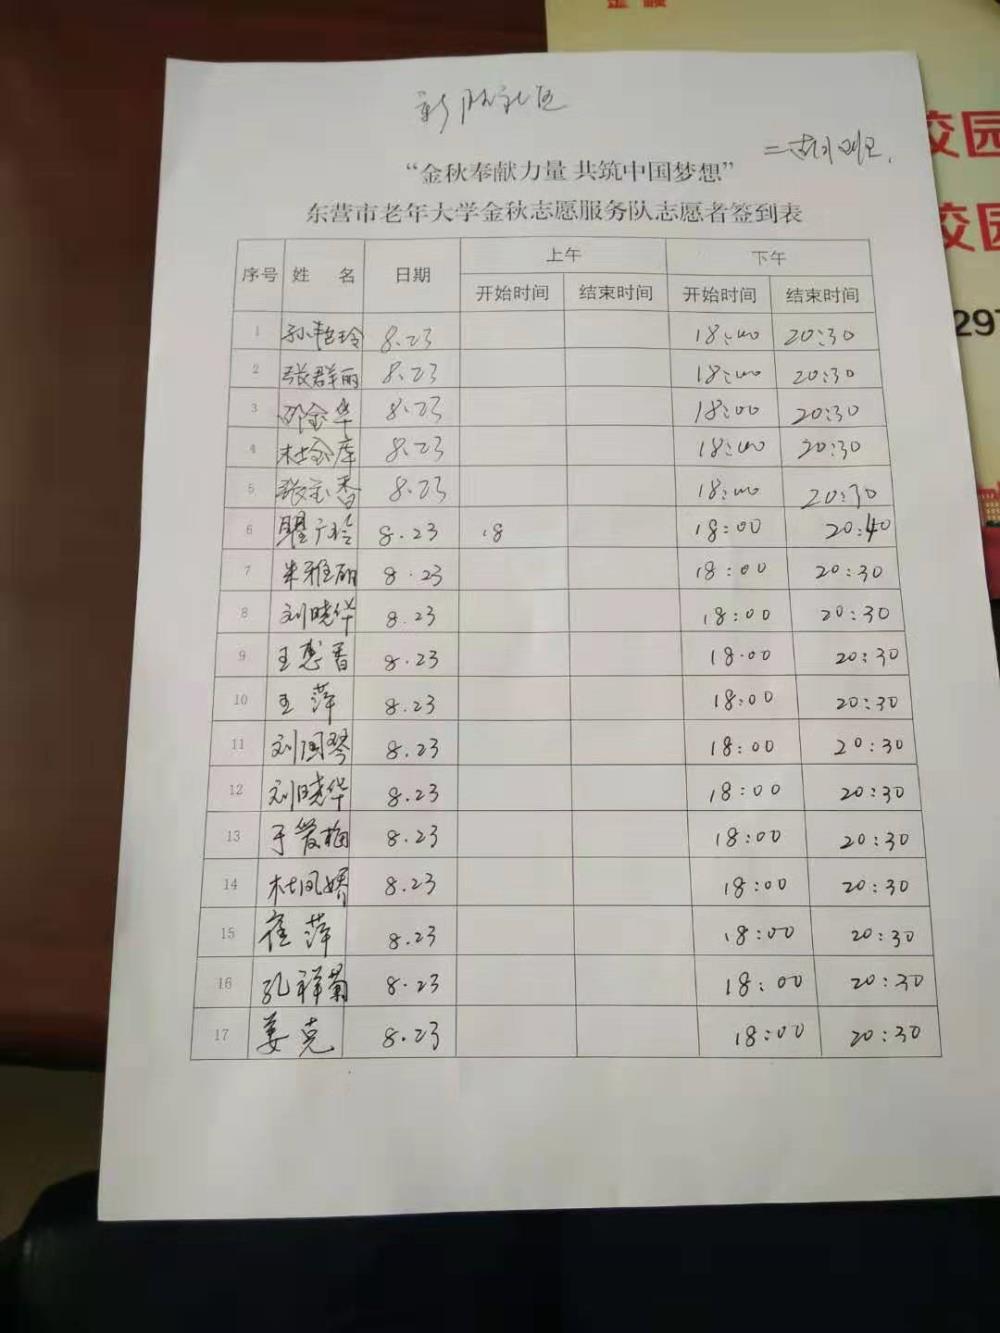 金
校园
校园
297
社区
二胡班.
“金秋奉献力量 共筑中国梦想”
东营市老年大学金秋志愿服务队志愿者签到表
序号 姓 名 日期 上午 下午
开始时间 结束时间 开始时间 结束时间
1 孙艳玲 8.23 18:00 20:30
2 张群丽 8.23 18:00 20:30
3 邵金华 8.23 18:00 20:30
4 杜金库 8.23 18:00 20:30
5 张玉香 8.23 18:00 20:30
6 瞿广玲 8.23 18 18:00 20:40
7 朱雅丽 8.23 18:00 20:30
8 刘晓华 8.23 18:00 20:30
9 王惠香 8.23 18:00 20:30
10 王萍 8.23 18:00 20:30
11 刘国琴 8.23 18:00 20:30
12 刘晓华 8.23 18:00 20:30
13 于爱梅 8.23 18:00 20:30
14 杜凤娇 8.23 18:00 20:30
15 崔萍 8.23 18:00 20:30
16 孔祥菊 8.23 18:00 20:30
17 姜克 8.23 18:00 20:30